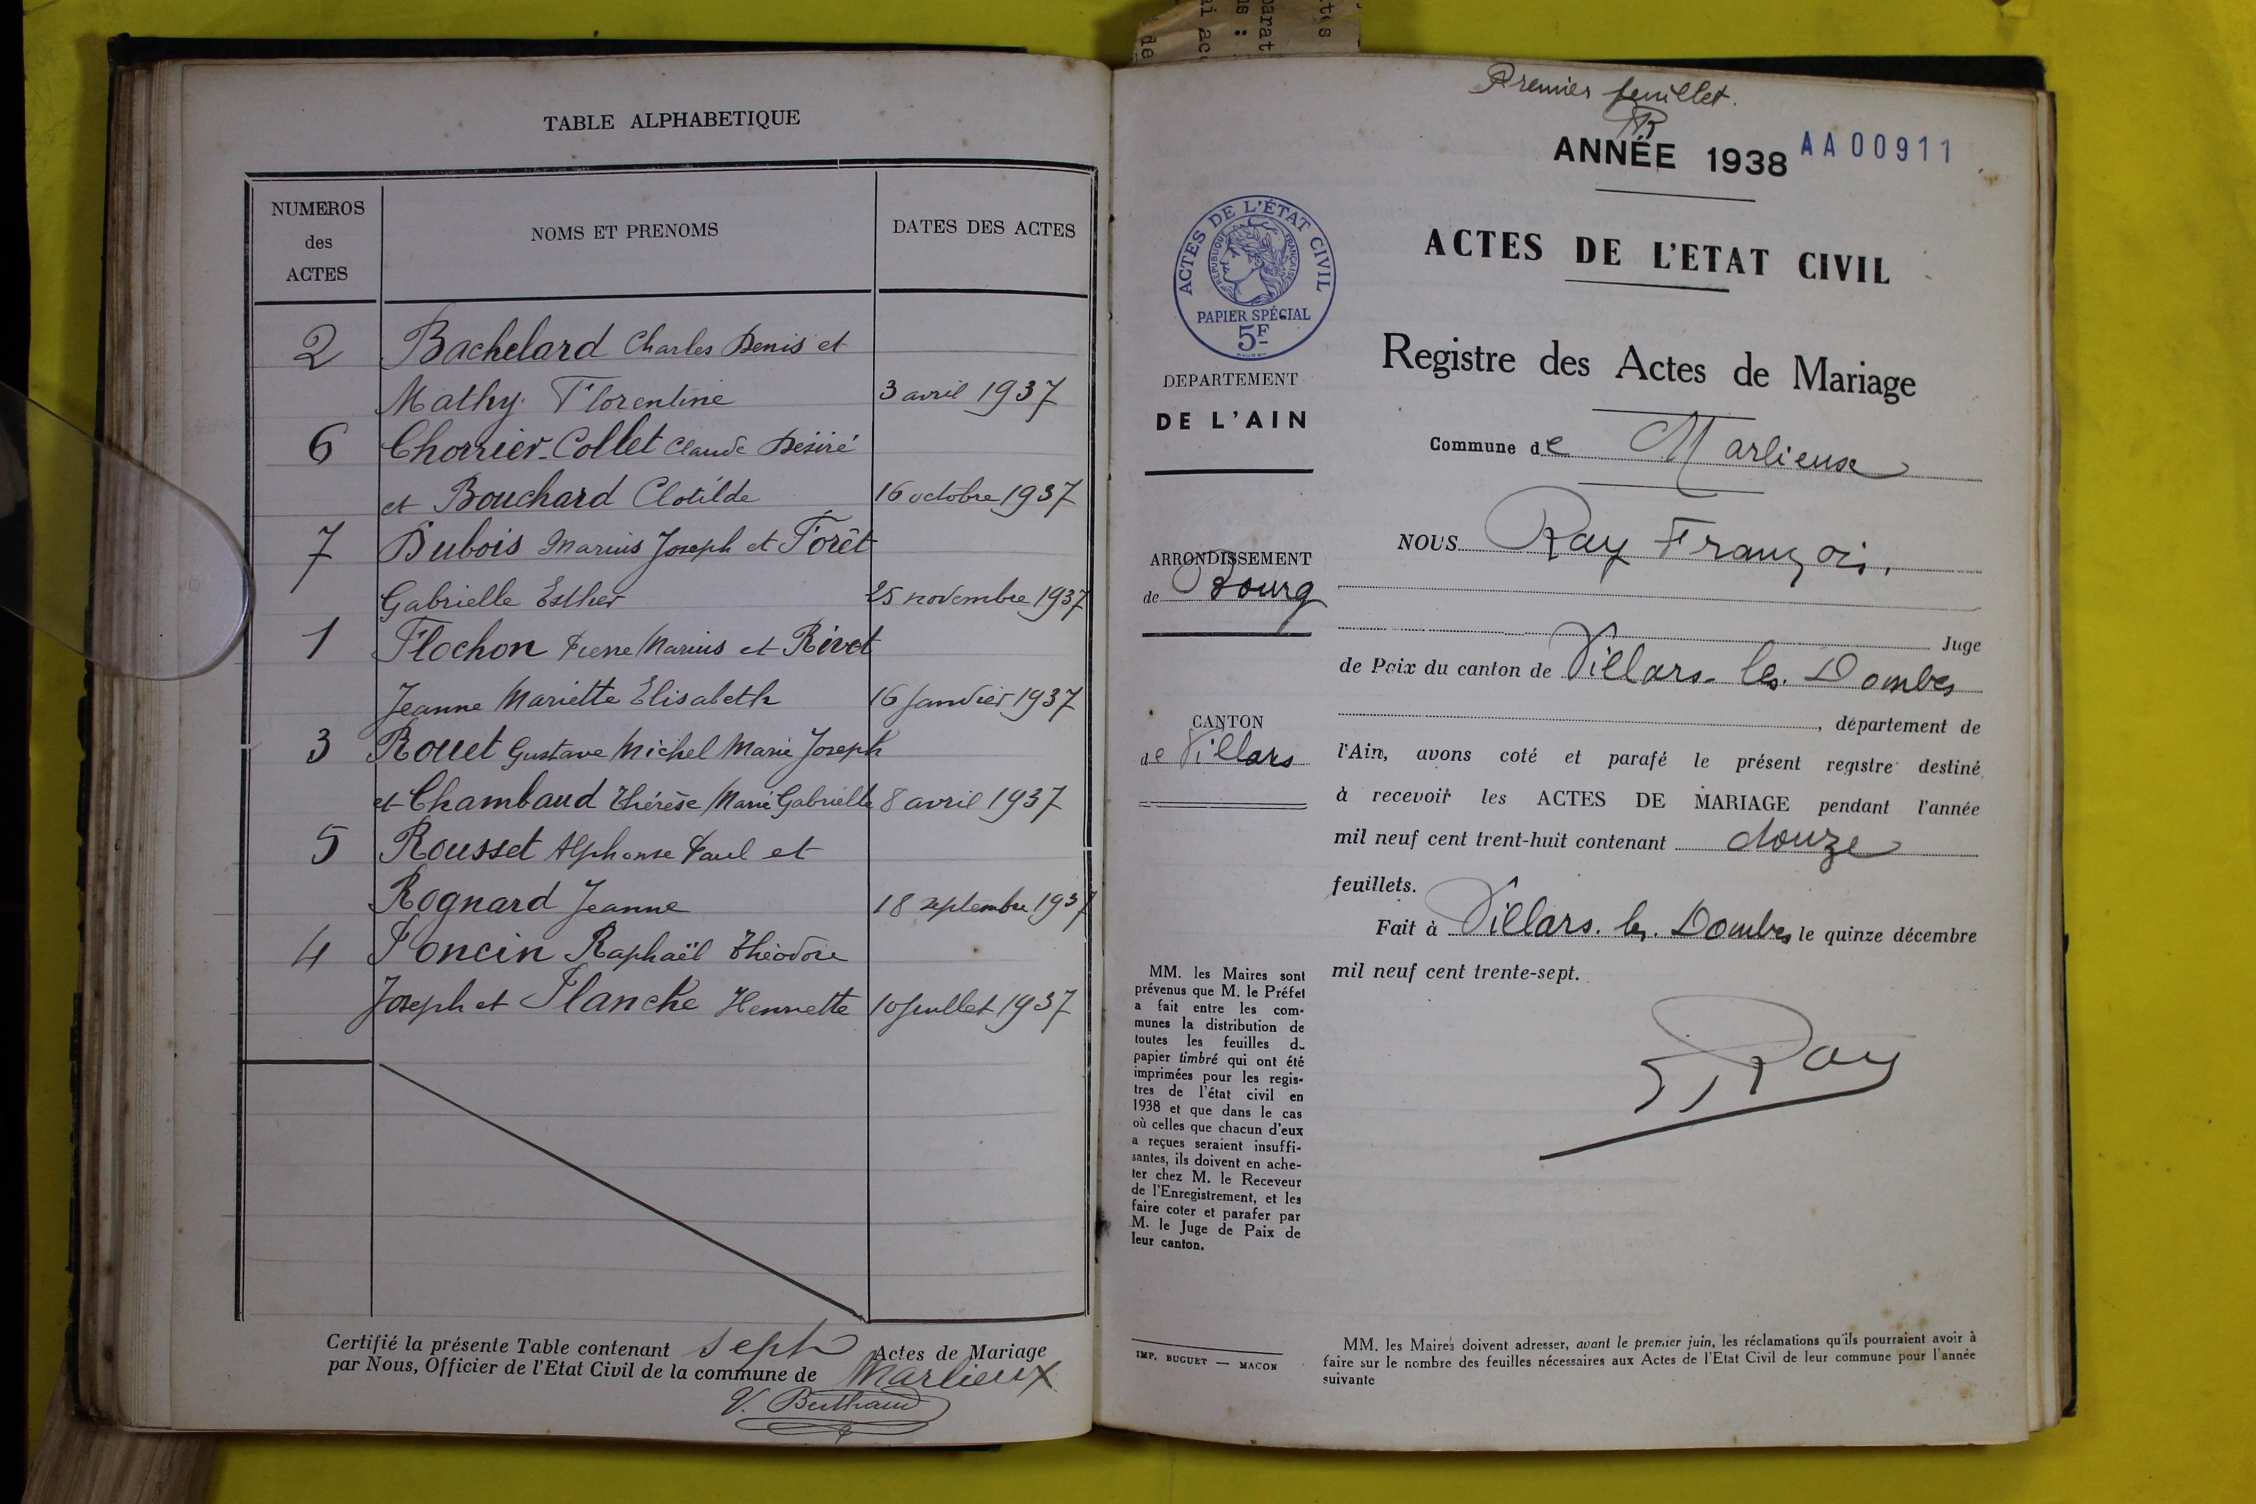 TABLE ALPHABETIQUE
NUMEROS
des
ACTES
NOMS ET PRENOMS
DATES DES ACTES
2 Bachelard Charles Denis et
Mathy Florentine 3 avril 1937
6 Chorrier-Collet Claude Désiré
et Bouchard Clotilde 16 octobre 1937
7 Dubois Marius Joseph et Forêt
Gabrielle Esther 25 novembre 1937
1 Flochon Pierre Marius et Rivet
Jeanne Mariette Elisabeth 16 Janvier 1937
3 Rouet Gustave Michel Marie Joseph
et Chambaud Thérèse Marie Gabrielle 8 avril 1937
5 Rousset Alphonse Paul et
Rognard Jeanne 18 septembre 1937
4 Poncin Raphaël Théodore
Joseph et Planche Henriette 10 Juillet 1937
Certifié la présente Table contenant sept Actes de Mariage
par Nous, Officier de l'Etat Civil de la commune de Marlieux
V. Berthaud
Premier feuillet.
ANNÉE 1938 AA00911
ACTES DE L'ETAT CIVIL
ACTES DE L'ÉTAT CIVIL
RÉPUBLIQUE FRANÇAISE
PAPIER SPÉCIAL
5F
Registre des Actes de Mariage
DEPARTEMENT
DE L'AIN
Commune de Marlieux
ARRONDISSEMENT
de Bourg
CANTON
de Villars
NOUS Ray François,
Juge
de Paix du canton de Villars-les-Dombes
, département de
l'Ain, avons coté et parafé le présent registre destiné
à recevoir les ACTES DE MARIAGE pendant l'année
mil neuf cent trent-huit contenant douze
feuillets.
Fait à Villars-les-Dombes le quinze décembre
mil neuf cent trente-sept.
Ray
MM. les Maires sont
prévenus que M. le Préfet
a fait entre les com-
munes la distribution de
toutes les feuilles de
papier timbré qui ont été
imprimées pour les regis-
tres de l'état civil en
1938 et que dans le cas
où celles que chacun d'eux
a reçues seraient insuffi-
santes, ils doivent en ache-
ter chez M. le Receveur
de l'Enregistrement, et les
faire coter et parafer par
M. le Juge de Paix de
leur canton.
IMP. BUGUET — MACON
MM. les Maires doivent adresser, avant le premier juin, les réclamations qu'ils pourraient avoir à
faire sur le nombre des feuilles nécessaires aux Actes de l'Etat Civil de leur commune pour l'année
suivante